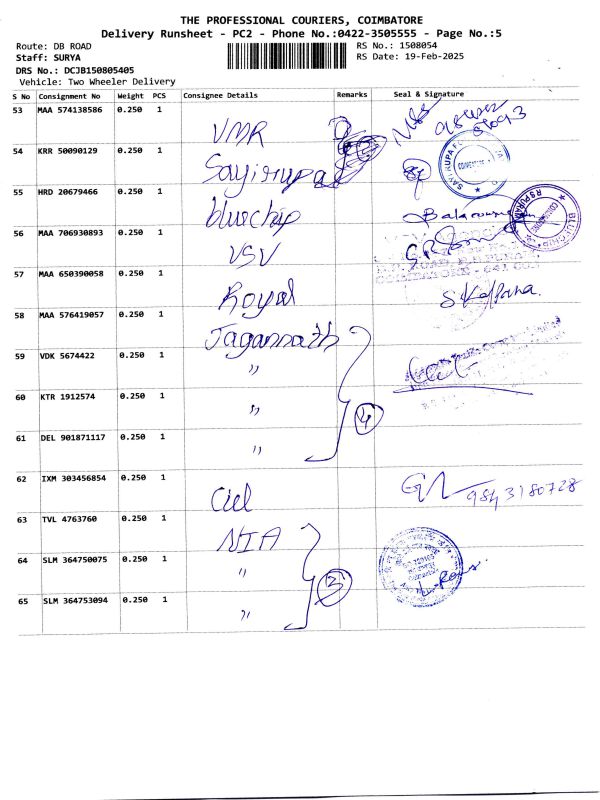 THE PROFESSIONAL COURIERS, COIMBATORE
Delivery Runsheet - PC2 - Phone No.:0422-3505555 - Page No.:5
Route: DB ROAD
RS No.: 1508054
Staff: SURYA
RS Date: 19-Feb-2025
DRS No.: DCJB150805405
Vehicle: Two Wheeler Delivery
S No Consignment No Weight PCS Consignee Details Remarks Seal & Signature
53 MAA 574138586 0.250 1 VMR
54 KRR 50090129 0.250 1 Sayirupa
55 HRD 20679466 0.250 1 bluechip
56 MAA 706930893 0.250 1 VSV
57 MAA 650390058 0.250 1 Royal S Kalpana
58 MAA 576419057 0.250 1 Jagannath
59 VDK 5674422 0.250 1 "
60 KTR 1912574 0.250 1 " 4
61 DEL 901871117 0.250 1 "
62 IXM 303456854 0.250 1 Ciel 9843180728
63 TVL 4763760 0.250 1 NIA
64 SLM 364750075 0.250 1 " 3
65 SLM 364753094 0.250 1 "